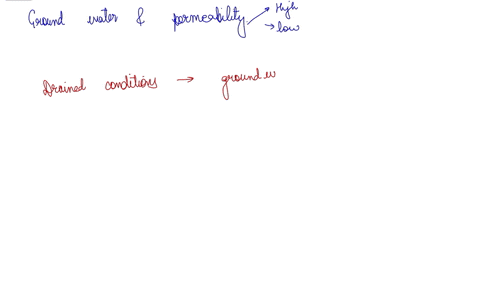 Ground water & permeability → High
→ low
Drained conditions → ground w